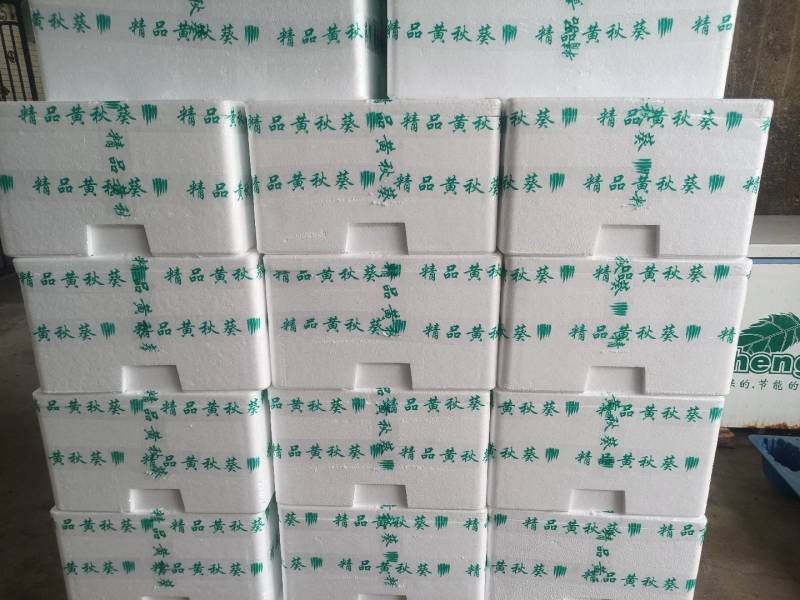 精品黄秋葵 精品黄秋葵
精品黄秋葵 精品黄秋葵 品黄秋葵 精品黄秋葵 精品黄秋葵 精品黄秋葵
精品黄秋葵 精品 品黄秋葵 精品黄秋 精品黄秋葵 精
精品黄秋葵 精品黄秋葵 精品黄秋葵 精品黄秋葵 精品黄秋葵
黄秋葵 精品黄秋葵 精品黄秋葵 精品黄秋葵 精品黄秋葵
精品黄秋葵 精品黄秋葵 品黄秋葵 精品黄秋葵 精品黄秋葵
黄秋葵 精品黄秋葵 品黄秋葵 精品黄秋葵 精品黄秋葵
品黄秋葵 精品黄秋葵 精品黄秋葵 精品黄秋葵 精品黄秋葵
黄秋葵 精品黄秋葵 精品黄秋葵 精品黄秋葵
heng
的,节能的